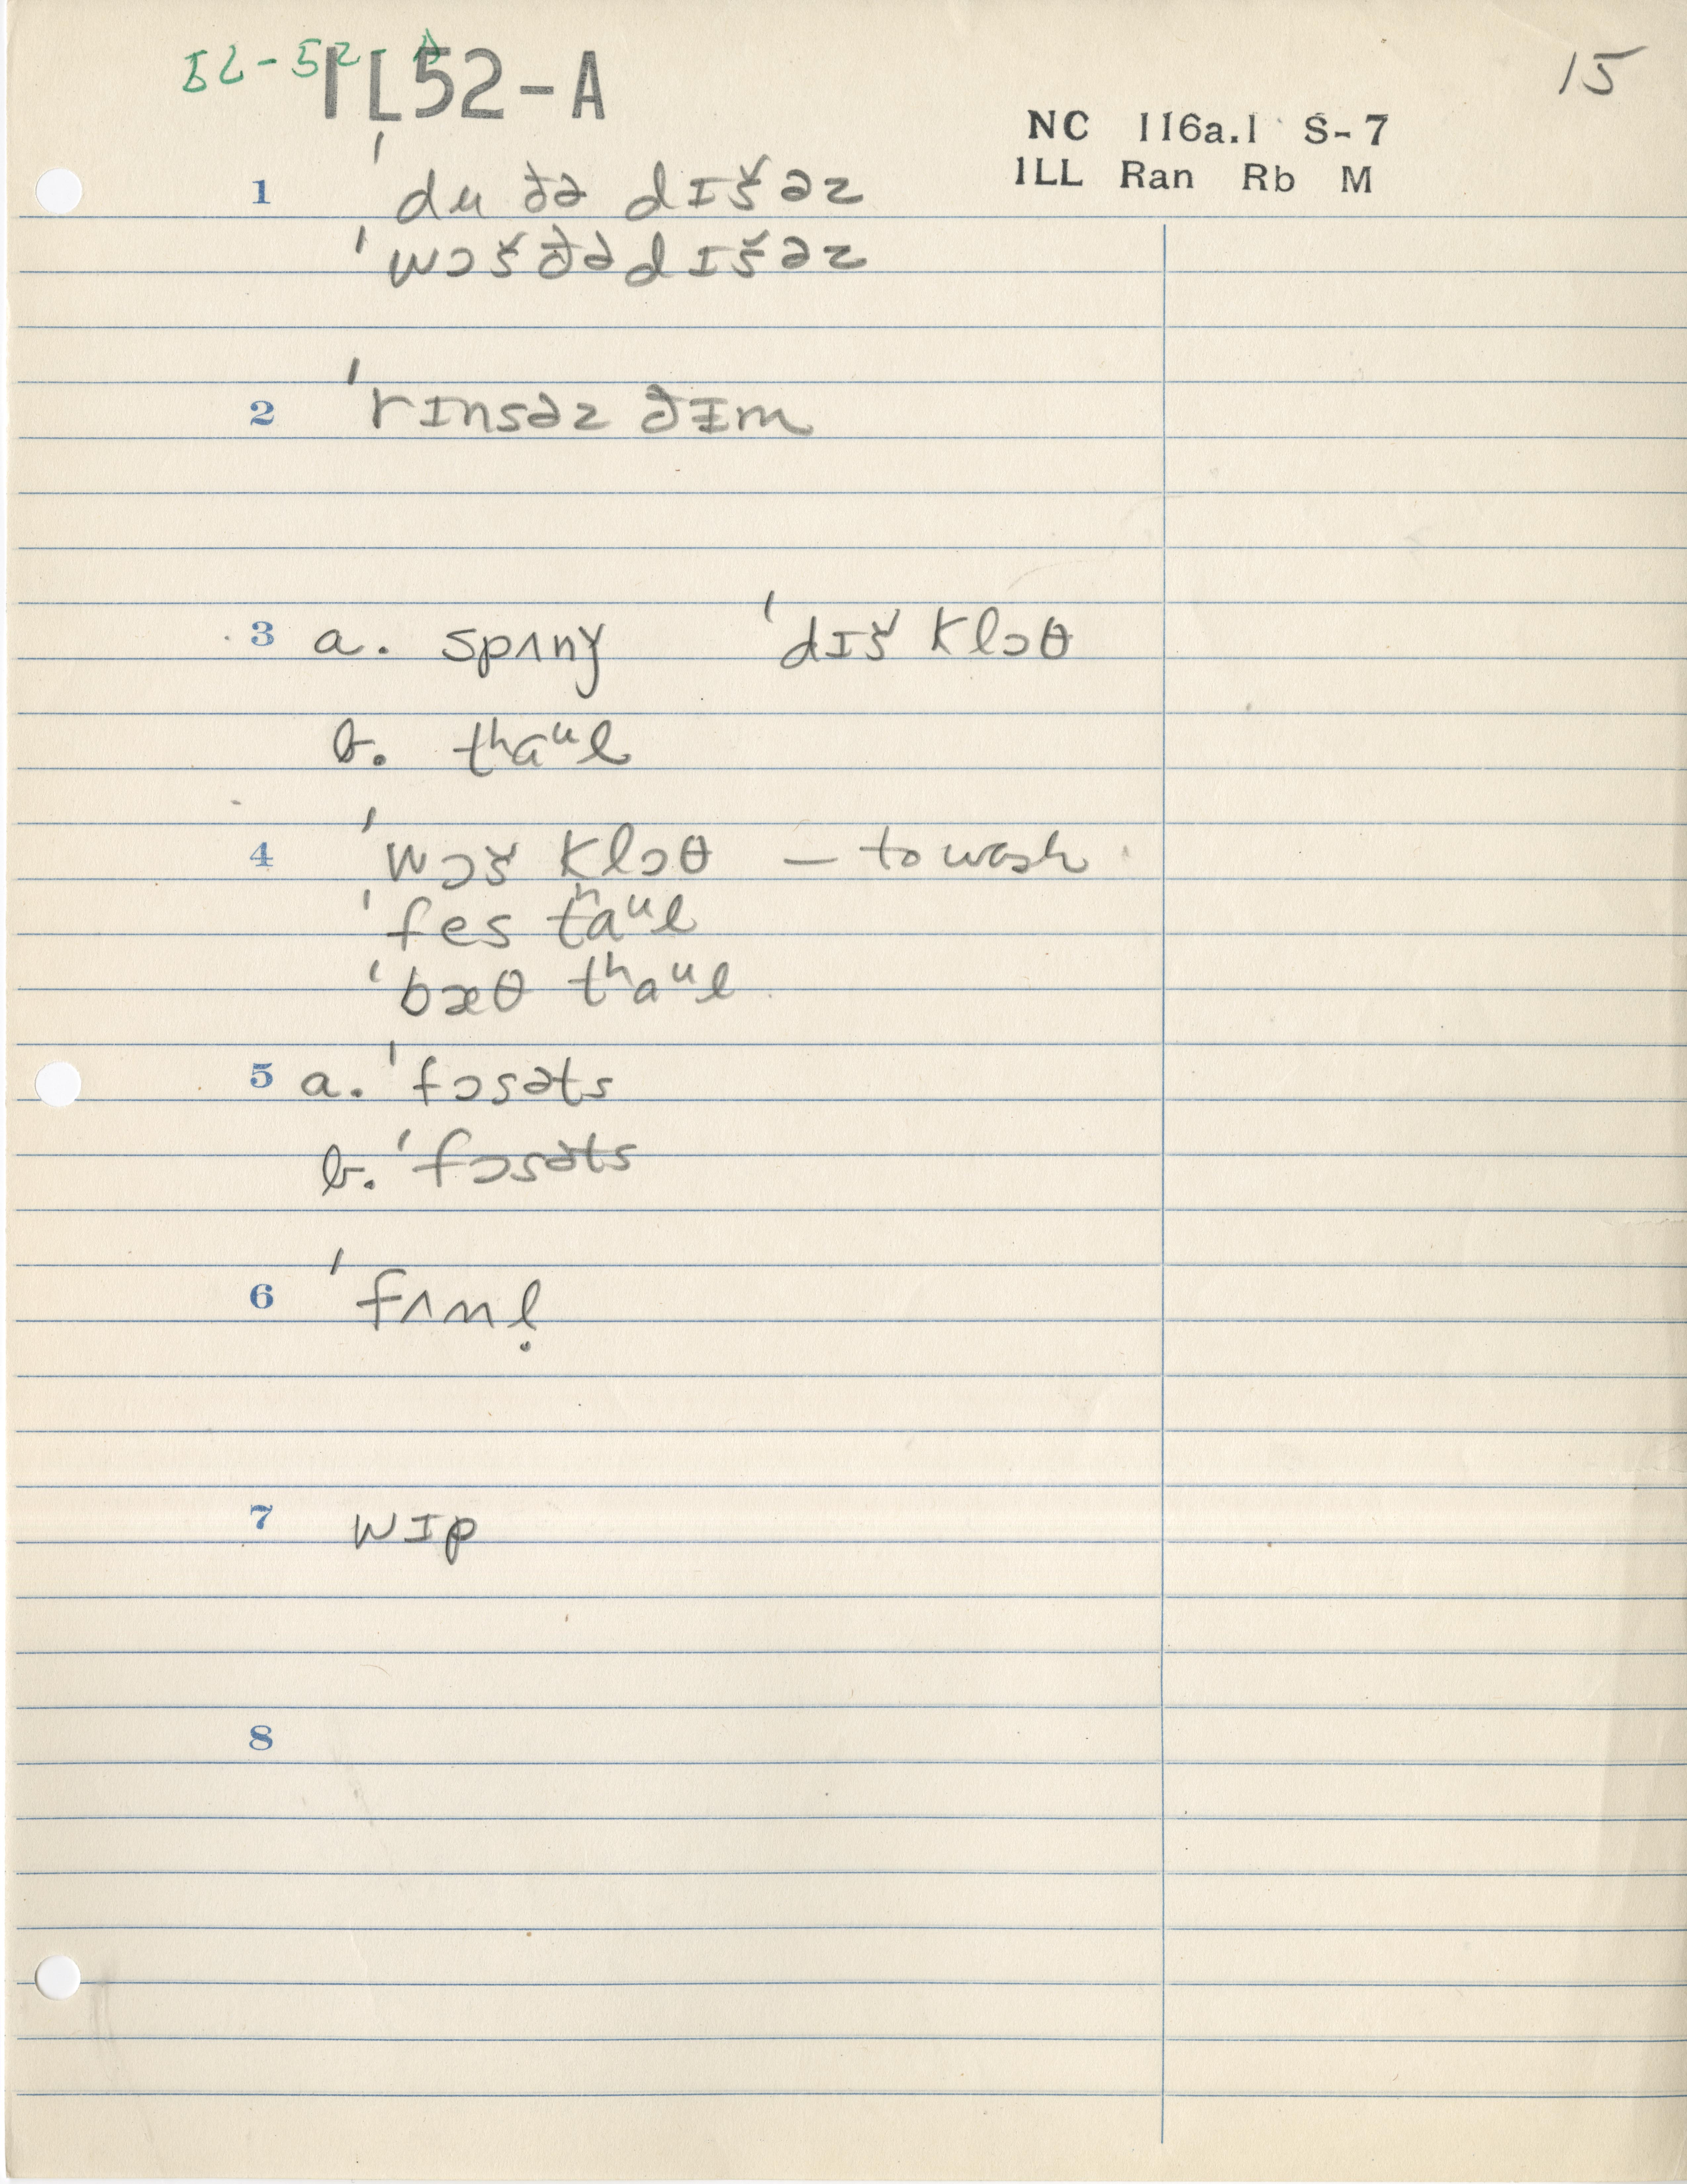 52-52 A
IL52-A
15
NC 116a.1 S-7
ILL Ran Rb M
1 ˈdu ðə dɪšəz
ˈwɔšðədɪšəz
2 ˈrɪnsəz ðɪm
3 a. spʌnǰ ˈdɪš klɔθ
b. tʰaᵘl
4 ˈwɔš klɔθ – to wash
ˈfes tʰaᵘl
ˈbæθ tʰaᵘl
5 a. ˈfɔsəts
b. ˈfɔsəts
6 ˈfʌnl̩
7 wɪp
8